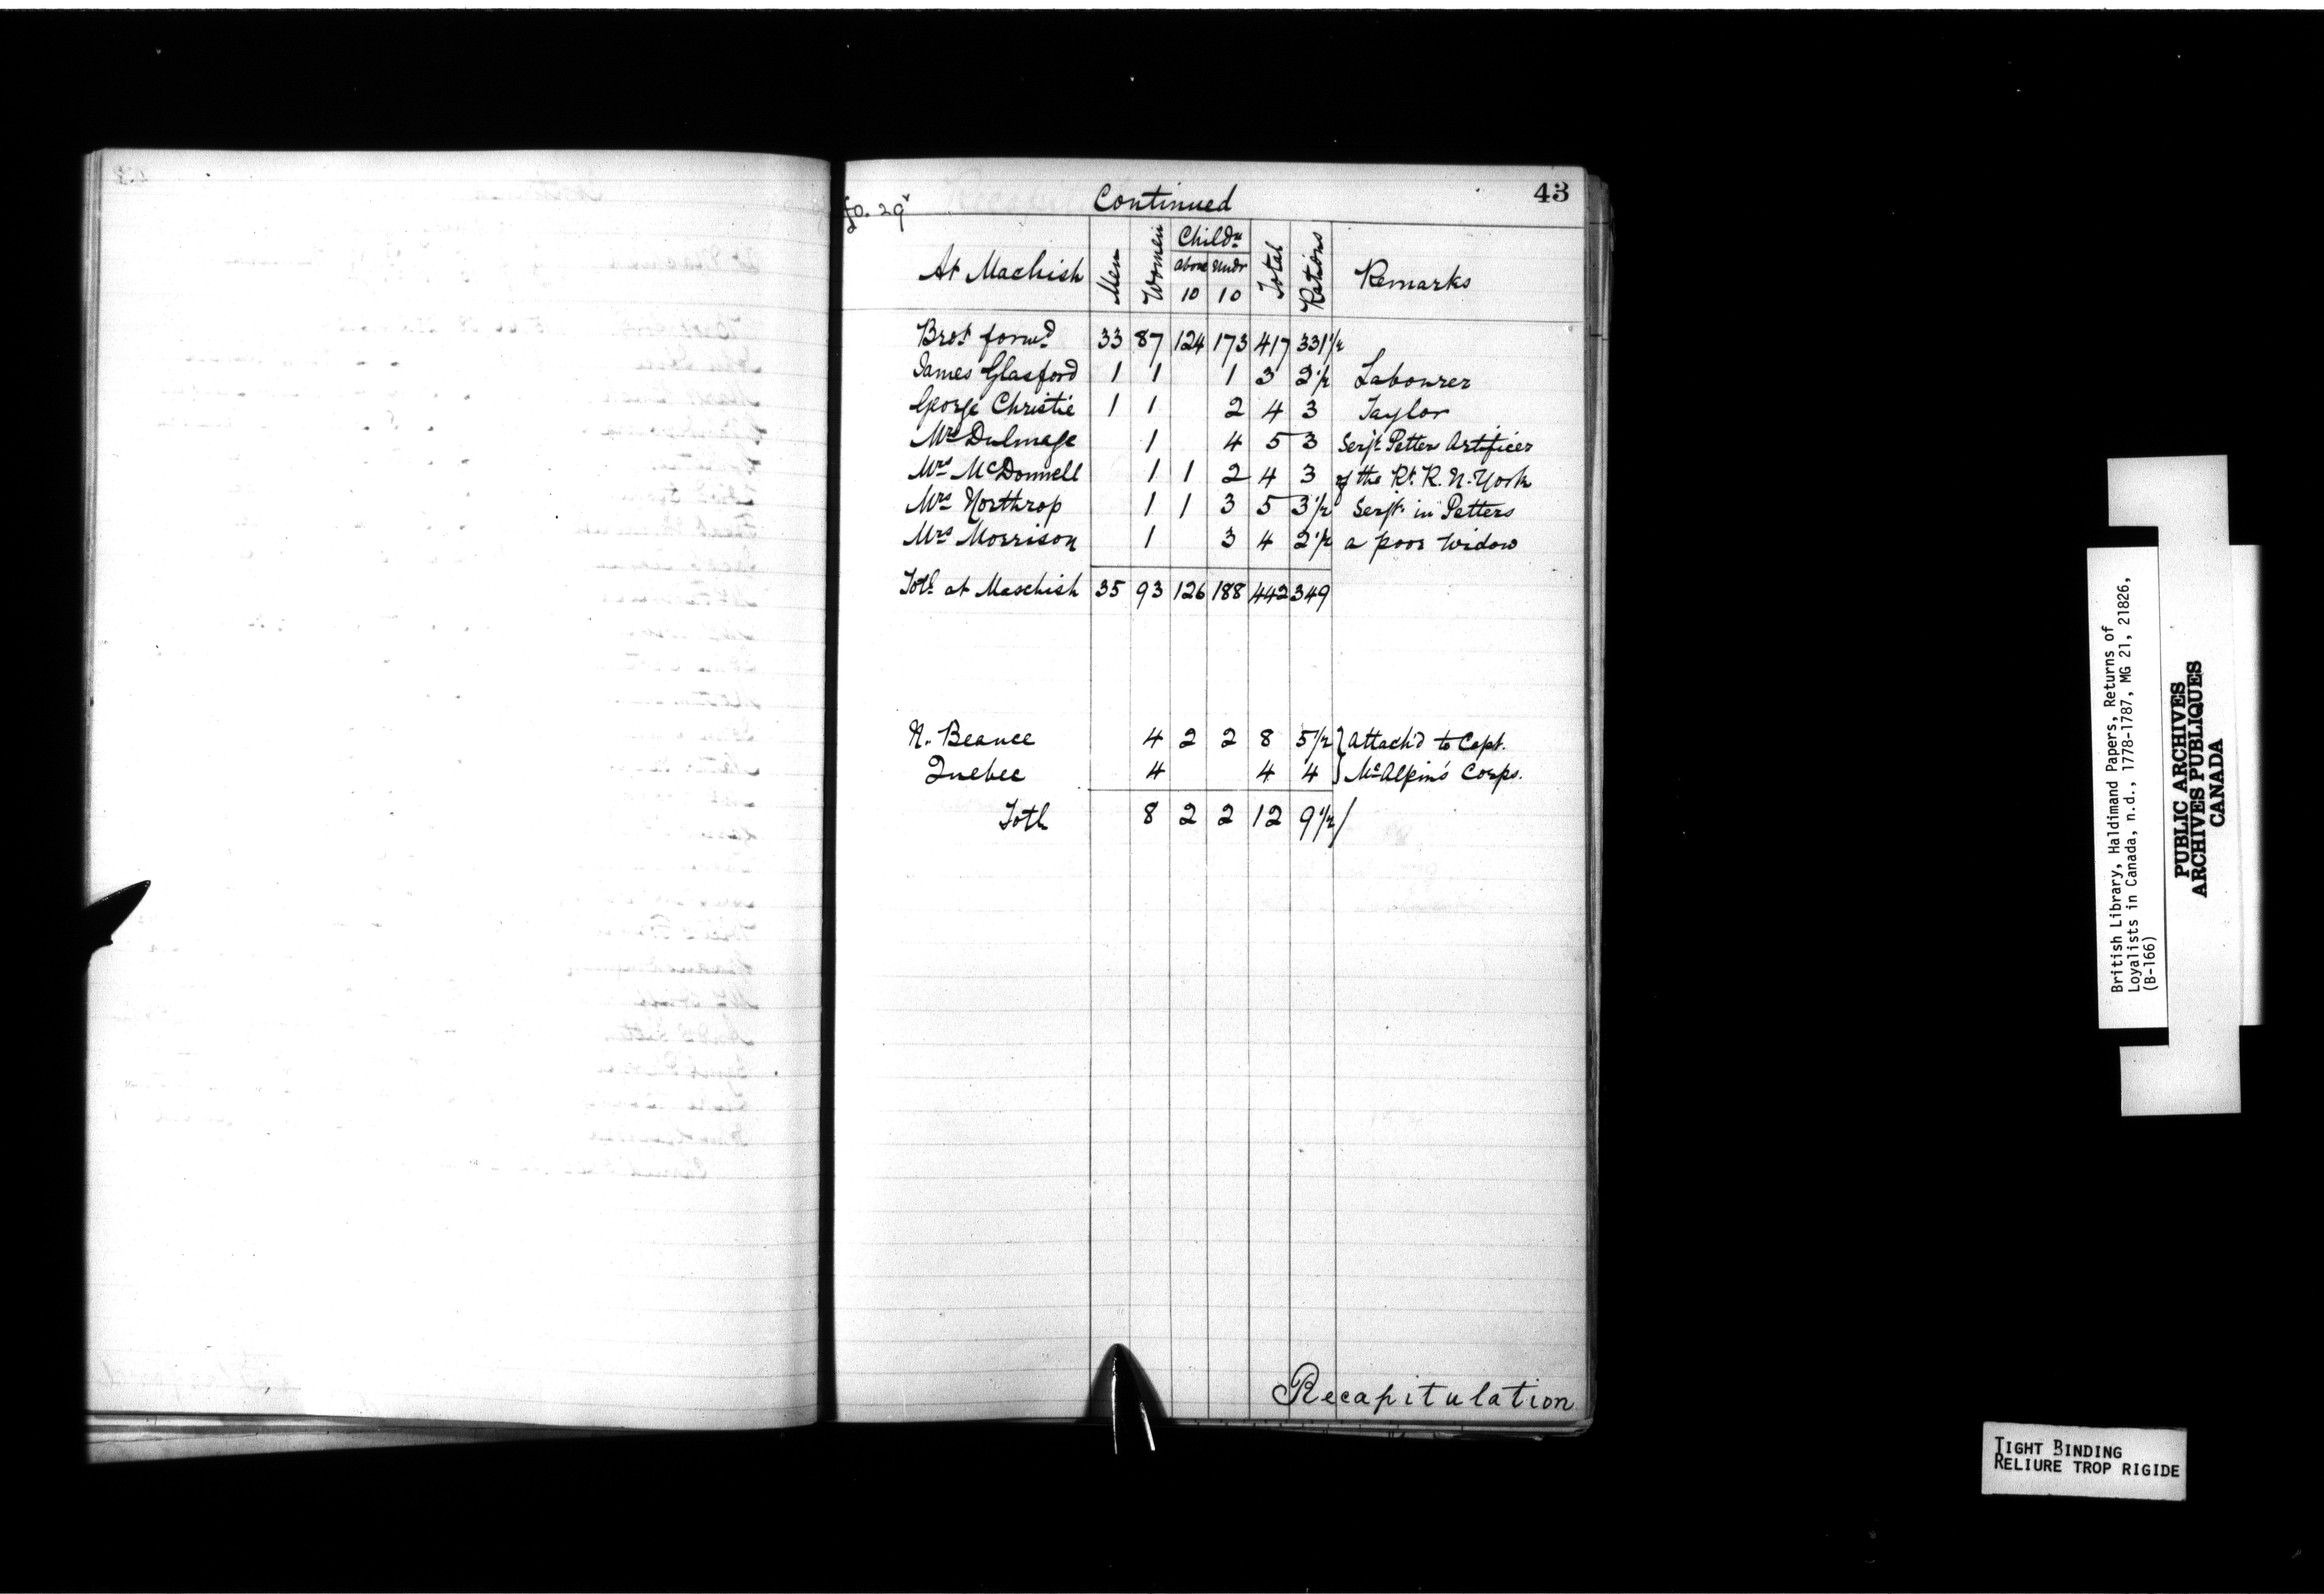 43
Continued
fo. 29v
At Machish Men Women Childn Total Rations Remarks
above undr
10 10
Brot forwd 33 87 124 173 417 331 1/2
James Glasford 1 1 1 3 2 1/2 Labourer
George Christie 1 1 2 4 3 Taylor
Mrs Dulmage 1 4 5 3 Serjt Petters Artificer
Mrs McDonnell 1 1 2 4 3 of the Rt. R. N. York
Mrs Northrop 1 1 3 5 3 1/2 Serjt in Petters
Mrs Morrison 1 3 4 2 1/2 a poor Widow
Totl at Maschish 35 93 126 188 442 349
N. Beauce 4 2 2 8 5 1/2 } Attach'd to Capt.
Quebec 4 4 4 } McAlpin's Corps.
Totl 8 2 2 12 9 1/2 /
Recapitulation
British Library, Haldimand Papers, Returns of
Loyalists in Canada, n.d., 1778-1787, MG 21, 21826,
(B-166)
PUBLIC ARCHIVES
ARCHIVES PUBLIQUES
CANADA
TIGHT BINDING
RELIURE TROP RIGIDE